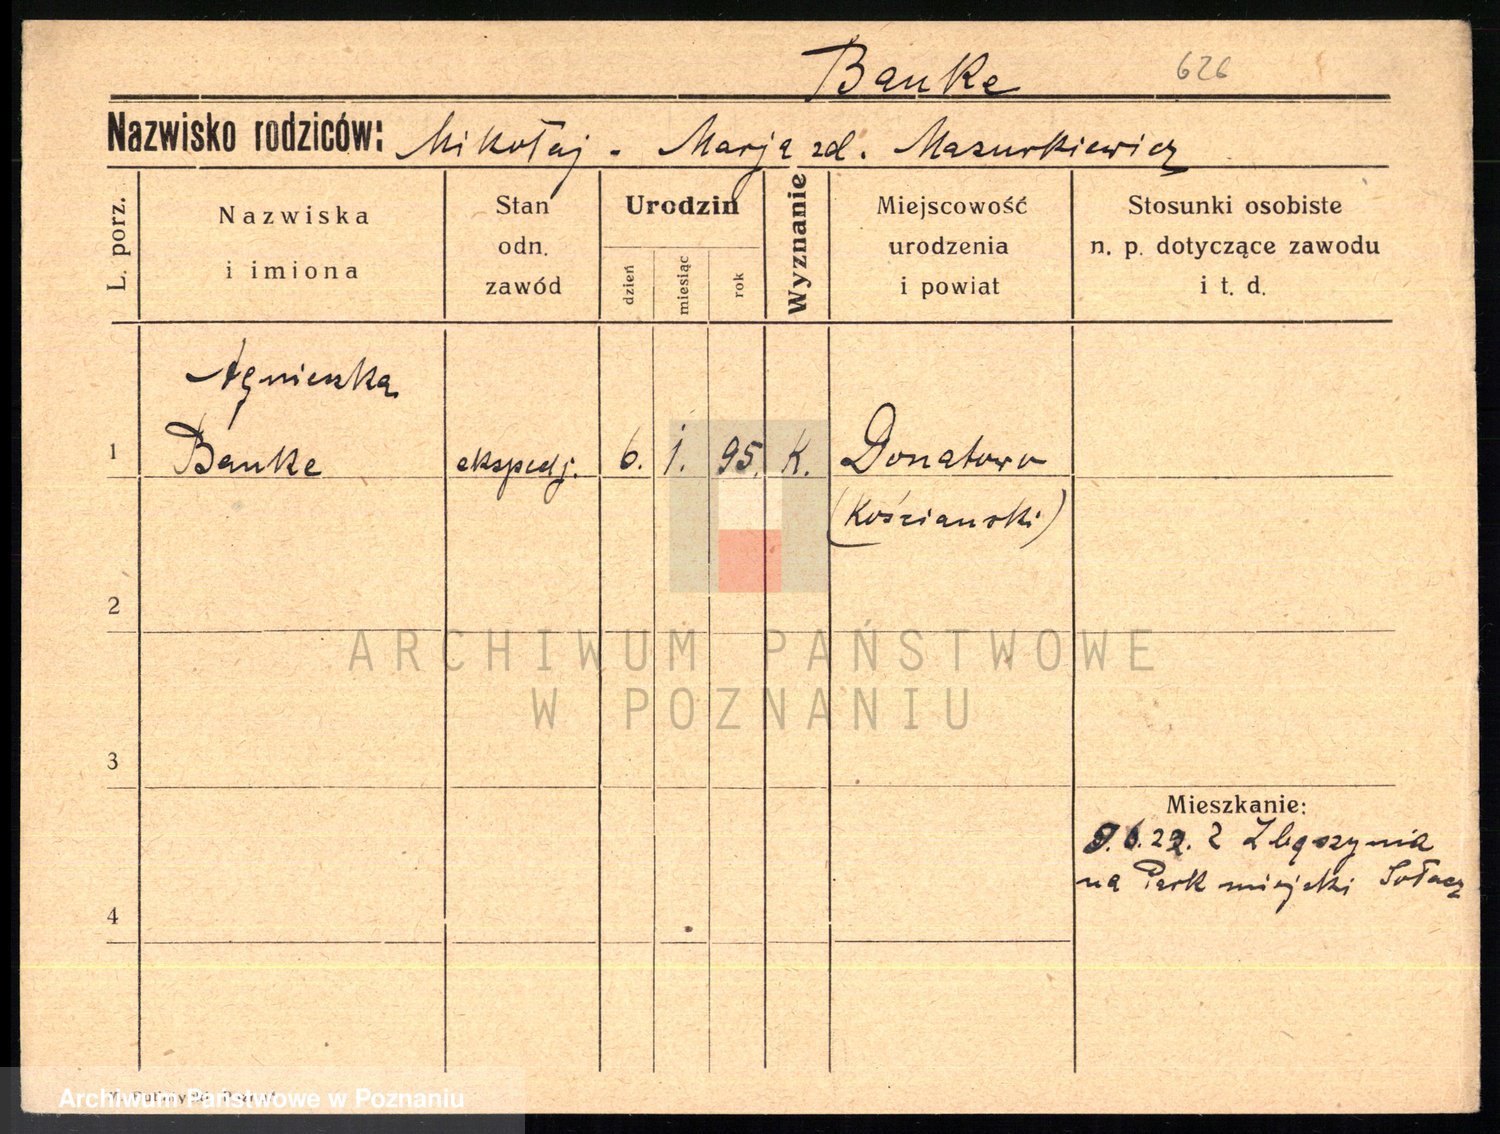 Banke 626
Nazwisko rodziców: Mikołaj - Marja zd. Mazurkiewicz
L. porz.
Nazwiska
i imiona
Stan
odn.
zawód
Urodzin
dzień
miesiąc
rok
Wyznanie
Miejscowość
urodzenia
i powiat
Stosunki osobiste
n. p. dotyczące zawodu
i t. d.
Agnieszka
1 Banke ekspedj. 6. 1. 95. K. Donatowo
(Kościanski)
2
ARCHIWUM PAŃSTWOWE
W POZNANIU
3
Mieszkanie:
2 Zbąszynia
na Park miejski Sołacz
4
Archiwum Państwowe w Poznaniu